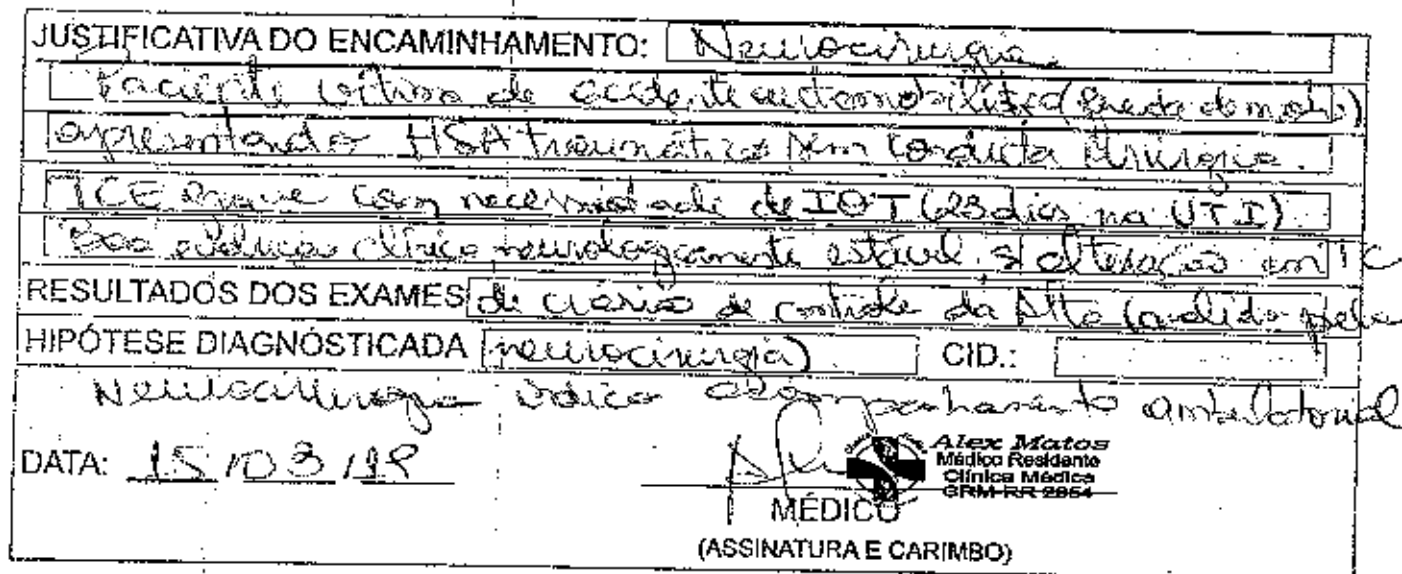 JUSTIFICATIVA DO ENCAMINHAMENTO: Neurocirurgia
Paciente vítima de acidente automobilístico (queda de moto)
apresentando HSA traumática sem conduta cirurgica.
TCE grave com necessidade de IOT (28 dias na UTI)
Boa evolução clínica neurologicamente estável s/ alteração em TC
RESULTADOS DOS EXAMES de crânio de controle da Alta (avalido pela
HIPÓTESE DIAGNÓSTICADA neurocirurgia) CID.:
Neurocirurgia indica acompanhamento ambulatorial
DATA: 15/03/19
Alex Matos
Médico Residente
Clínica Médica
CRM-RR 2054
MÉDICO
(ASSINATURA E CARIMBO)